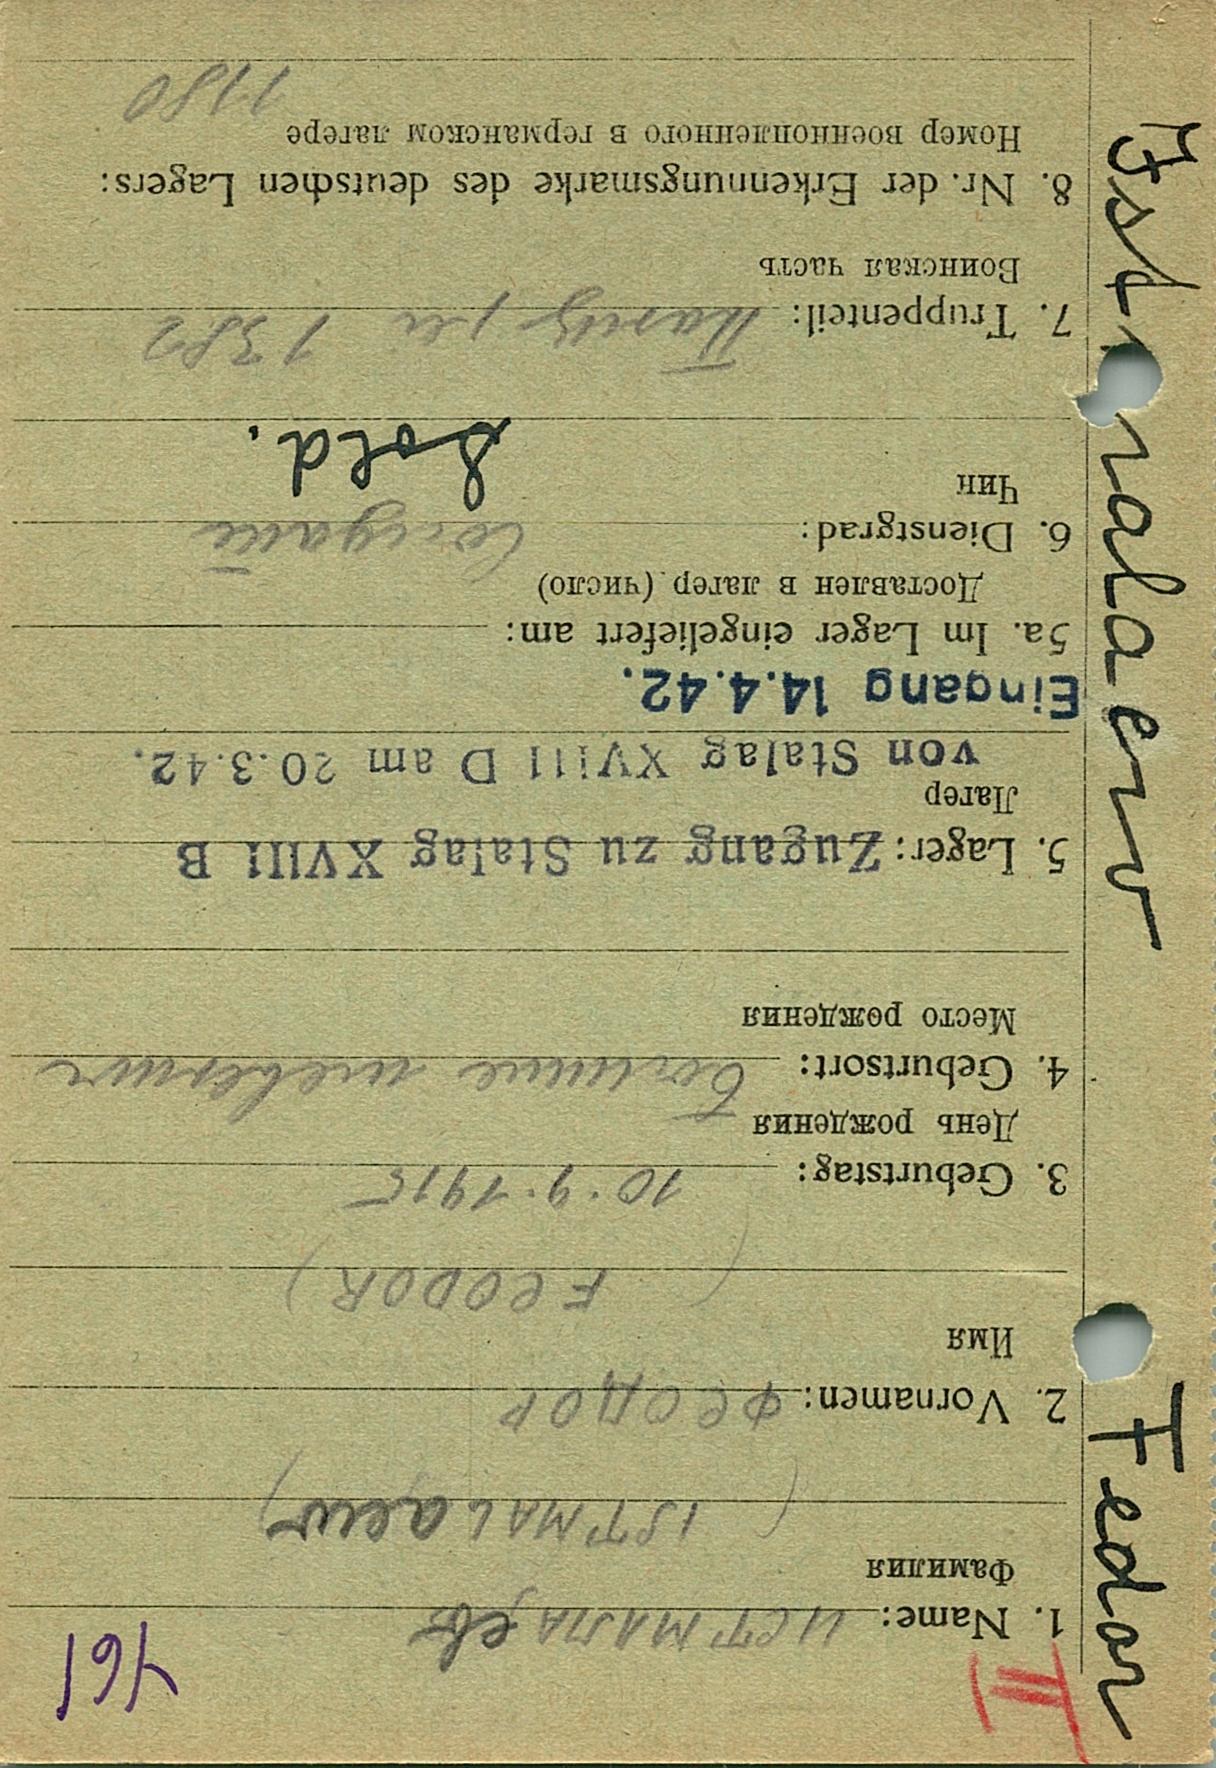 461
III
1. Name: ИСТМАЛАев
Фамилия
(ISTMALaew)
2. Vornamen: ФеОДОР
Имя
(FeODOR)
3. Geburtstag: 10.9.1915
День рождения
4. Geburtsort:
Место рождения
5. Lager: Zugang zu Stalag XVIII B
Лагер
von Stalag XVIII D am 20.3.42.
Eingang 14.4.42.
5a. Im Lager eingeliefert am:
Доставлен в лагер (число)
6. Dienstgrad: солдат
Чин
Sold.
7. Truppenteil: 1382
Воинская часть
8. Nr. der Erkennungsmarke des deutschen Lagers:
Номер военнопленного в германском лагере
1180
Istmalaew Fedor